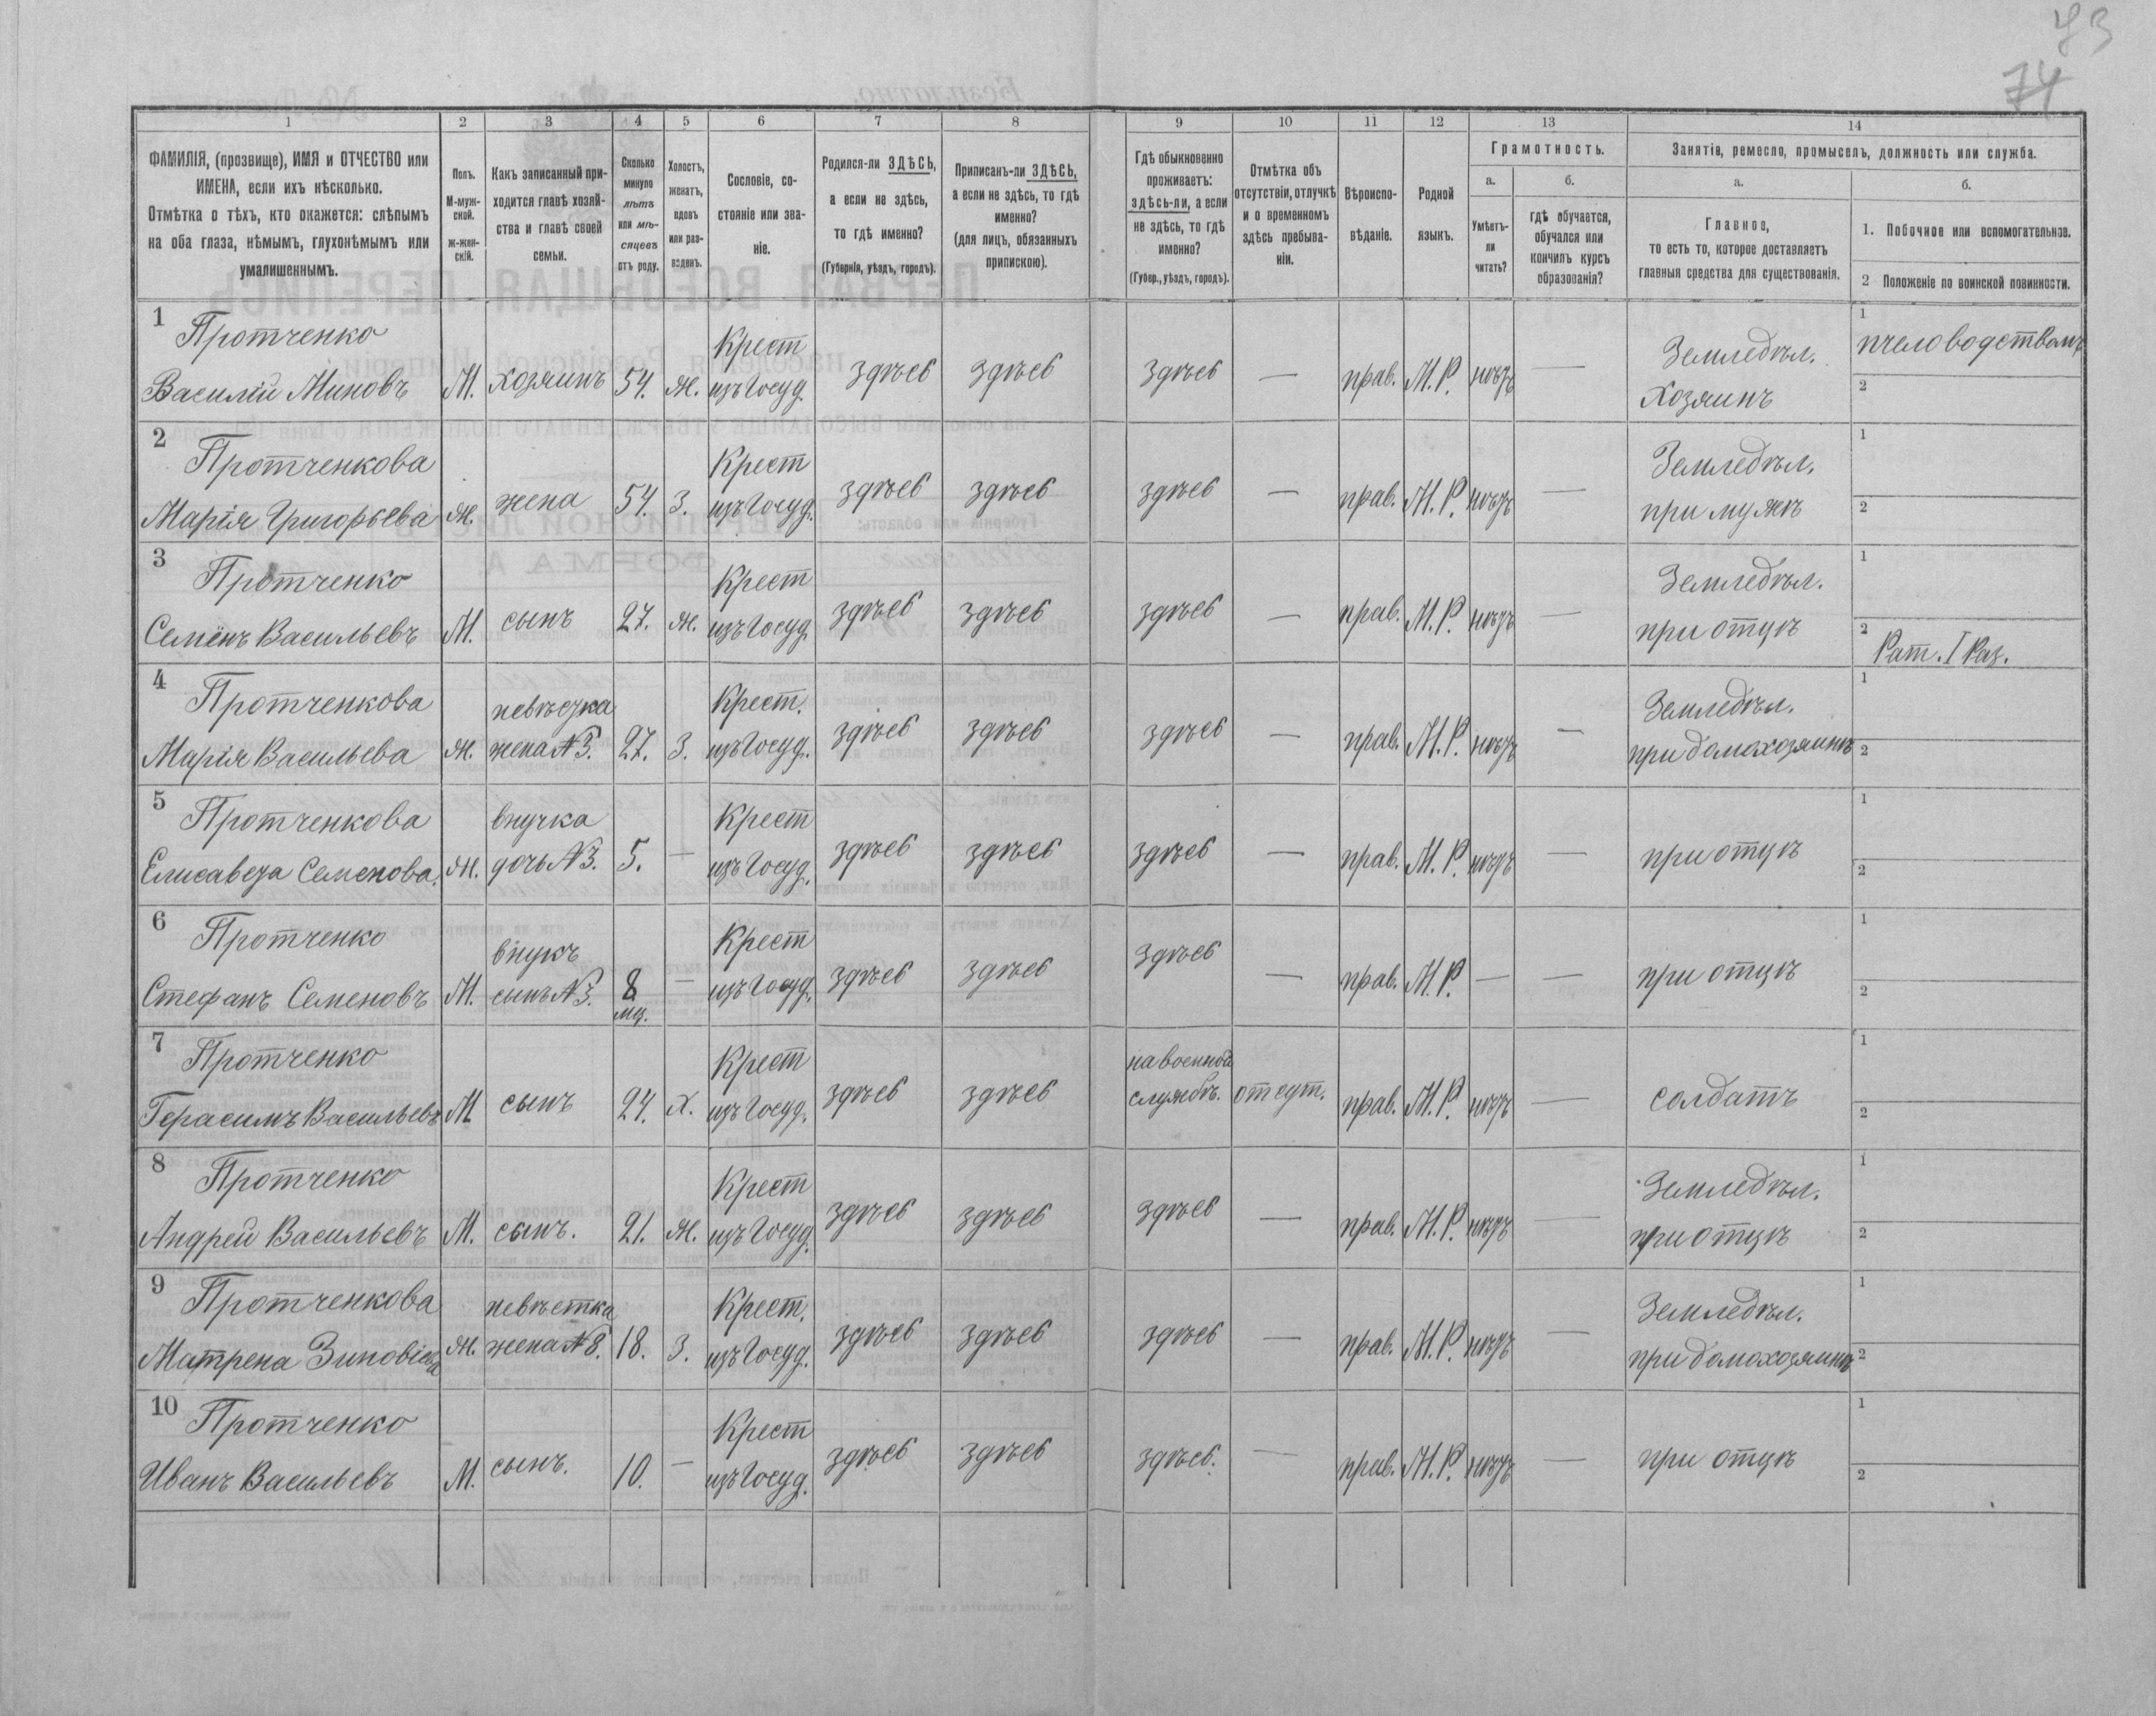 73
74
1 2 3 4 5 6 7 8 9 10 11 12 13 14
ФАМИЛІЯ, (прозвище), ИМЯ и ОТЧЕСТВО или ИМЕНА, если ихъ нѣсколько.
Отмѣтка о тѣхъ, кто окажется: слѣпымъ на оба глаза, нѣмымъ, глухонѣмымъ или умалишеннымъ.
Полъ.
М-мужской.
ж-женскій.
Какъ записанный приходится главѣ хозяйства и главѣ своей семьи.
Сколько минуло лѣтъ или мѣсяцевъ отъ роду.
Холостъ, женатъ, вдовъ или разведенъ.
Сословіе, состояніе или званіе.
Родился-ли ЗДѢСЬ, а если не здѣсь, то гдѣ именно?
(Губернія, уѣздъ, городъ).
Приписанъ-ли ЗДѢСЬ, а если не здѣсь, то гдѣ именно?
(для лицъ, обязанныхъ припискою).
Гдѣ обыкновенно проживаетъ: здѣсь-ли, а если не здѣсь, то гдѣ именно?
(Губер., уѣздъ, городъ).
Отмѣтка объ отсутствіи, отлучкѣ и о временномъ здѣсь пребываніи.
Вѣроисповѣданіе.
Родной языкъ.
Грамотность.
а.
Умѣетъ-ли читать?
б.
гдѣ обучается, обучался или кончилъ курсъ образованія?
Занятіе, ремесло, промыселъ, должность или служба.
а.
Главное,
то есть то, которое доставляетъ главныя средства для существованія.
б.
1. Побочное или вспомогательное.
2 Положеніе по воинской повинности.
1 Протченко Василій Миновъ М. хозяинъ 54. ж. Крест изъ Госуд. здѣсь здѣсь здѣсь — прав. М.Р. нѣтъ — Земледѣл. Хозяинъ 1 пчеловодствомъ 2
2 Протченкова Марія Григорьева ж. жена 54. З. Крест изъ Госуд. здѣсь здѣсь здѣсь — прав. М.Р. нѣтъ — Земледѣл. при мужѣ 1 2
3 Протченко Семёнъ Васильевъ М. сынъ 27. ж. Крест изъ Госуд. здѣсь здѣсь здѣсь — прав. М.Р. нѣтъ — Земледѣл. при отцѣ 1 2 Рат. I Раз.
4 Протченкова Марія Васильева ж. невѣстка жена №3. 27. З. Крест. изъ Госуд. здѣсь здѣсь здѣсь — прав. М.Р. нѣтъ — Земледѣл. при домохозяинѣ 1 2
5 Протченкова Елисавета Семенова. ж. внучка дочь №3. 5. — Крест изъ Госуд. здѣсь здѣсь здѣсь — прав. М.Р. нѣтъ — при отцѣ 1 2
6 Протченко Стефанъ Семеновъ М. внукъ сынъ №3. 8 мц. — Крест изъ Госуд. здѣсь здѣсь здѣсь — прав. М.Р. — — при отцѣ 1 2
7 Протченко Герасимъ Васильевъ М сынъ 24. Х. Крест изъ Госуд. здѣсь здѣсь на военной службѣ. отсут. прав. М.Р. нѣтъ — солдатъ 1 2
8 Протченко Андрей Васильевъ М. сынъ. 21. ж. Крест изъ Госуд. здѣсь здѣсь здѣсь — прав. М.Р. нѣтъ — Земледѣл. при отцѣ 1 2
9 Протченкова Матрена Зиновіева ж. невѣстка жена №8. 18. З. Крест. изъ Госуд. здѣсь здѣсь здѣсь — прав. М.Р. нѣтъ — Земледѣл. при домохозяинѣ 1 2
10 Протченко Иванъ Васильевъ М. сынъ. 10. — Крест изъ Госуд. здѣсь здѣсь здѣсь. — прав. М.Р. нѣтъ — при отцѣ 1 2